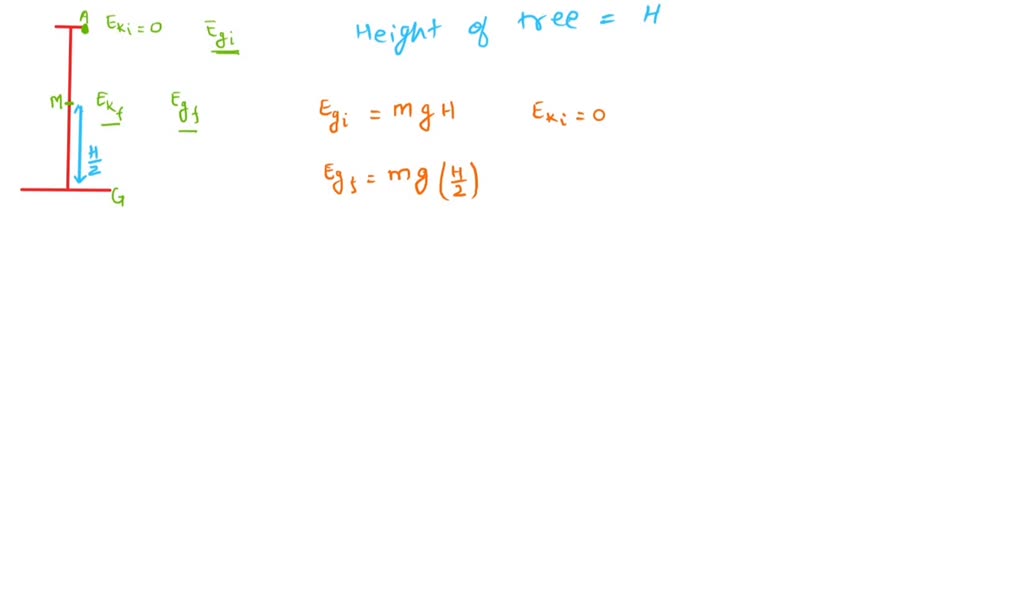 A E_{Ki} = 0 E_{gi} Height of tree = H
M E_{Kf} E_{gf} E_{gi} = mgH E_{Ki} = 0
H/2
E_{gf} = mg(H/2)
G